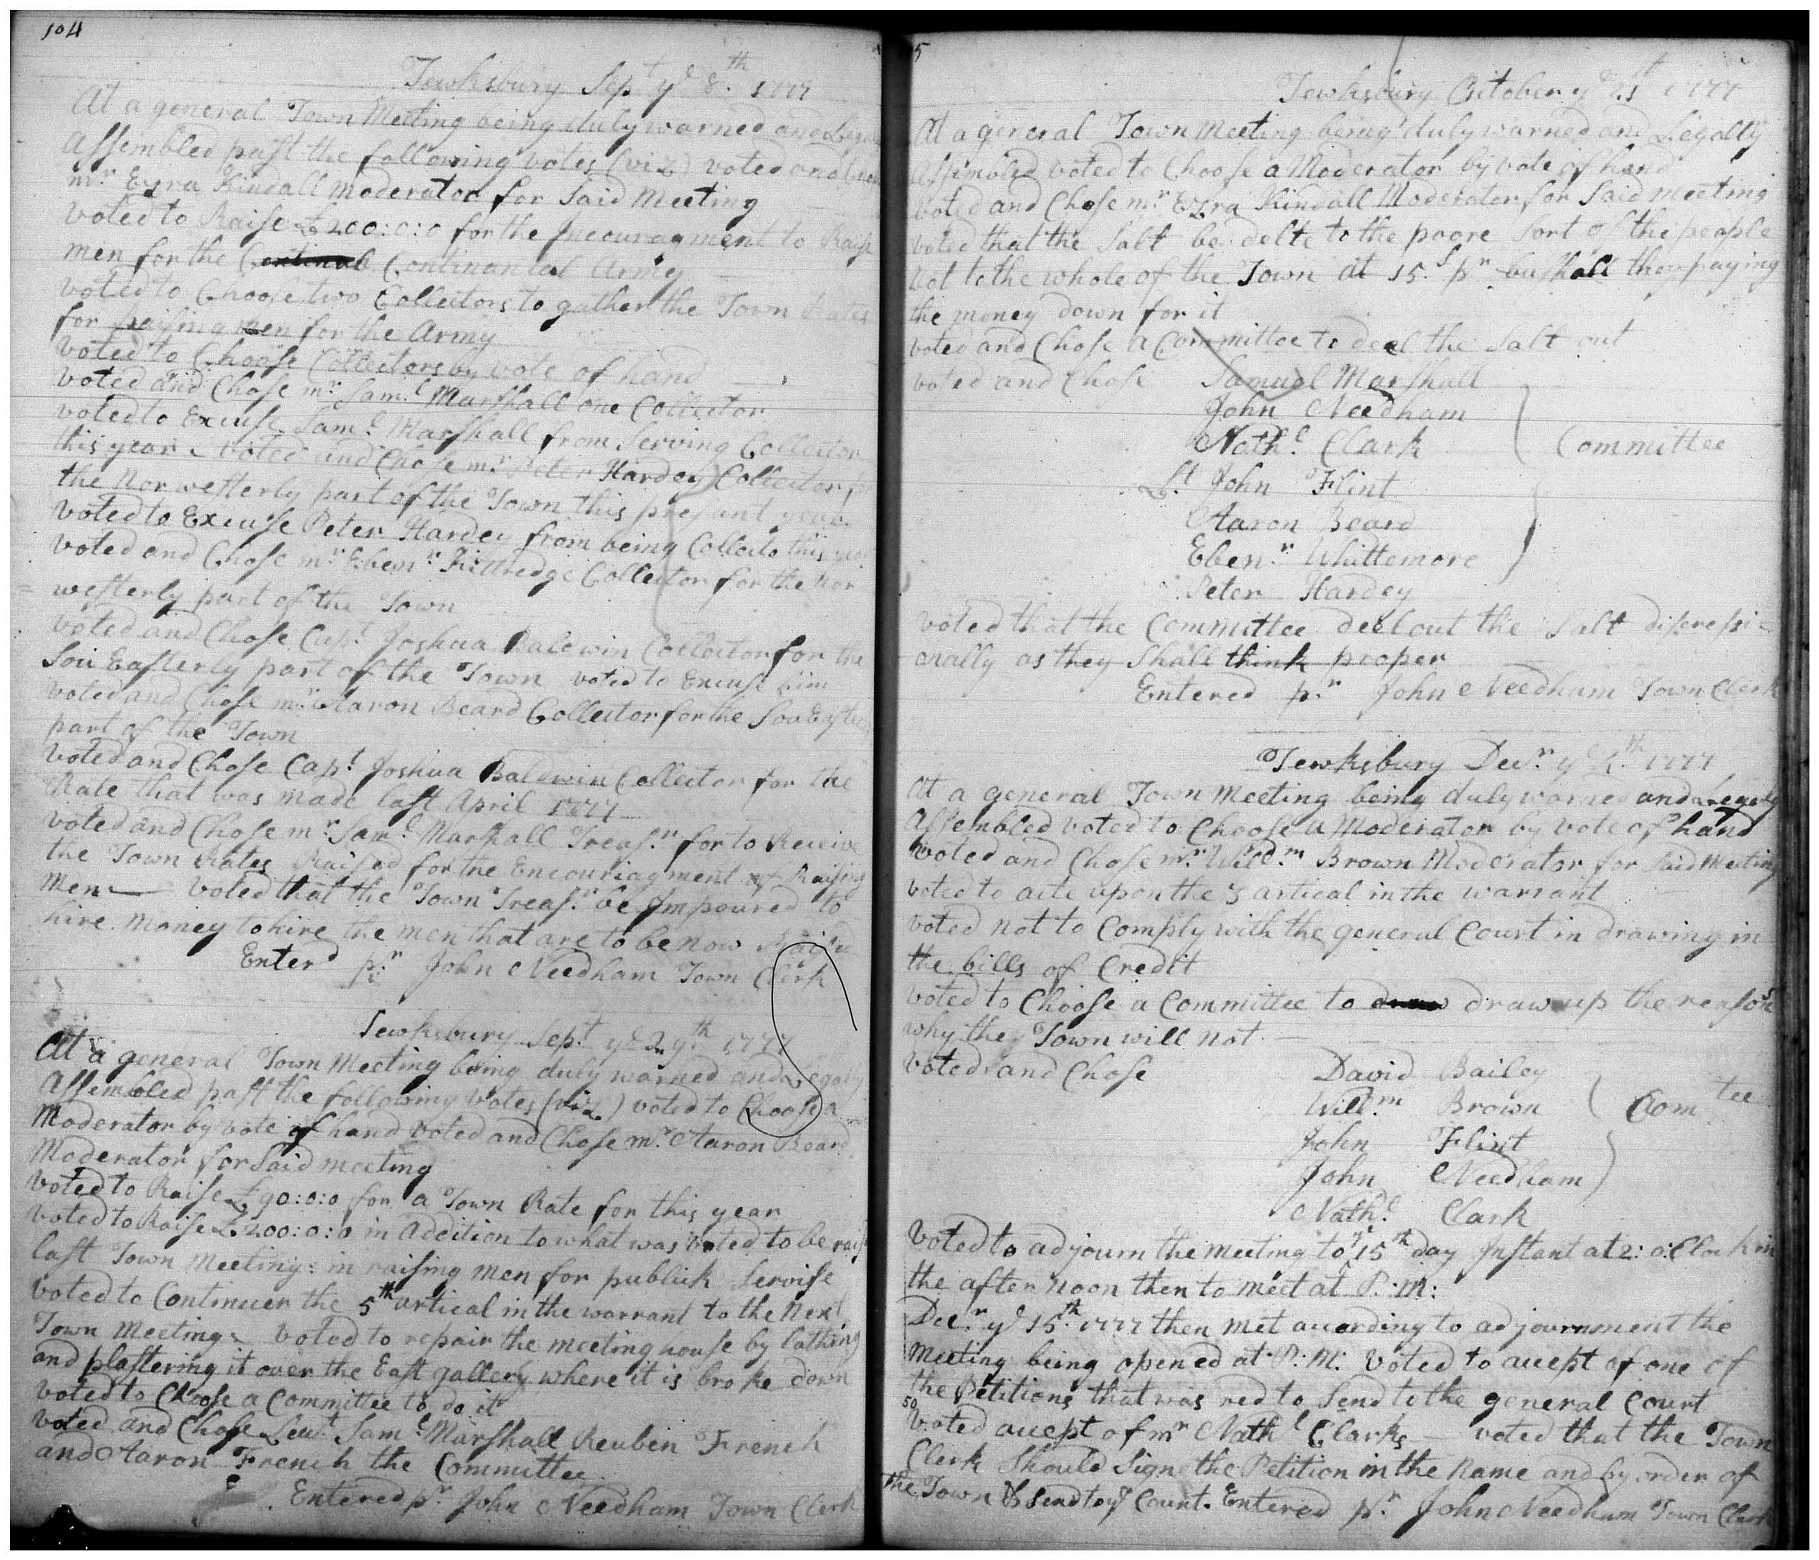 104
Tewksbury Sept ye 8th 1777
At a general Town Meeting being duly warned and
Assembled past the following votes (viz) voted and
mr Ezra Kindall moderator for Said Meeting
Voted to Raise £200:0:0 for the Incouragment to Raise
men for the Continantal Army
voted to Choose two Collectors to gather the Town Rates
for raising men for the Army
Voted to Choose Collectors by vote of hand
Voted and Chose mr Saml Marshall one Collector
voted to Excuse Saml Marshall from Serving Collector
this year voted and Chose mr Peter Hardey Collector for
the Nor westerly part of the Town this present year
Voted to Excuse Peter Hardey from being Collecto this year
voted and Chose mr Ebenr Kittredge Collector for the Nor
= westerly part of the Town
Voted and Chose Capt Joshua Baldwin Collector for the
Sou Easterly part of the Town voted to Excuse him
voted and Chose mr Aaron Beard Collector for the Sou Easterly
part of the Town
Voted and Chose Capt Joshua Baldwin Collector for the
Rate that was made last April 1777
voted and Chose mr Saml Marshall Treasr for to Receive
the Town Rates Raised for the Encouriagment of Raising
Men — Voted that the Town Treasr be Impoured to
hire money to hire the men that are to be now Raised
Enterd pr John Needham Town Clerk
Tewksbury Sept ye 29th 1777
At a general Town Meeting being duly warned and Legally
Assembled past the following Votes (viz) voted to Choose a
Moderator by vote of hand voted and Chose mr Aaron Beard
Moderator for Said meeting
Voted to Raise £90:0:0 for a Town Rate for this year
Voted to Raise £200:0:0 in addition to what was voted to be raise
last Town Meeting: in raising men for publick Servise
Voted to Continuer the 5th artical in the warrant to the Next
Town Meeting Voted to repair the meeting house by lathing
and plastering it over the East gallery where it is broke down
Voted to Choose a Committee to do it
Voted and Chose Leut Saml Marshall Reuben French
and Aaron French the Committee
Entered pr John Needham Town Clerk
5
Tewksbury October ye 21st 1777
At a general Town Meeting being duly warned and Legally
Assimbled voted to Choose a Moderator by vote of hand
Voted and Chose mr Ezra Kindall Moderator for Said meeting
voted that the Salt be delte to the poore Sort of the people
Not to the whole of the Town at 15s pr bushall they paying
the money down for it
voted and Chose a Committee to deel the Salt out
voted and Chose Samuel Marshall
John Needham
Nathll Clark Committee
Lt John Flint
Aaron Beard
Ebenr Whittemore
Peter Hardey
Voted that the Committee deel out the Salt
onally as they Shall think proper
Entered pr John Needham Town Clerk
Tewksbury Decr ye 1777
At a general Town Meeting being duly warned and Legaly
Assembled voted to Choose a Moderator by vote of hand
Voted and Chose mr Willm Brown Moderator for Said Meeting
voted to acte upon the 3 artical in the warrant
voted not to Comply with the general Court in drawing in
the bills of Credit
voted to Choose a Committee to draw up the reasons
why they Town will not
Voted and Chose David Bailey
Willm Brown Comtee
John Flint
John Needham
Nathll Clark
Voted to adjourn the meeting to ye 15th day Instant at 2: o:Clock in
the after noon then to meet at P:M:
Decr ye 15th 1777 then met according to adjournment the
Meeting being opened at P:M: Voted to accept of one of
the Petitions that was red to Send to the general Court
Voted accept of mr Nathll Clarks — voted that the Town
Clerk Should Signe the Petition in the Name and by order of
the Town & send to ye Court. Entered pr John Needham Town Clerk